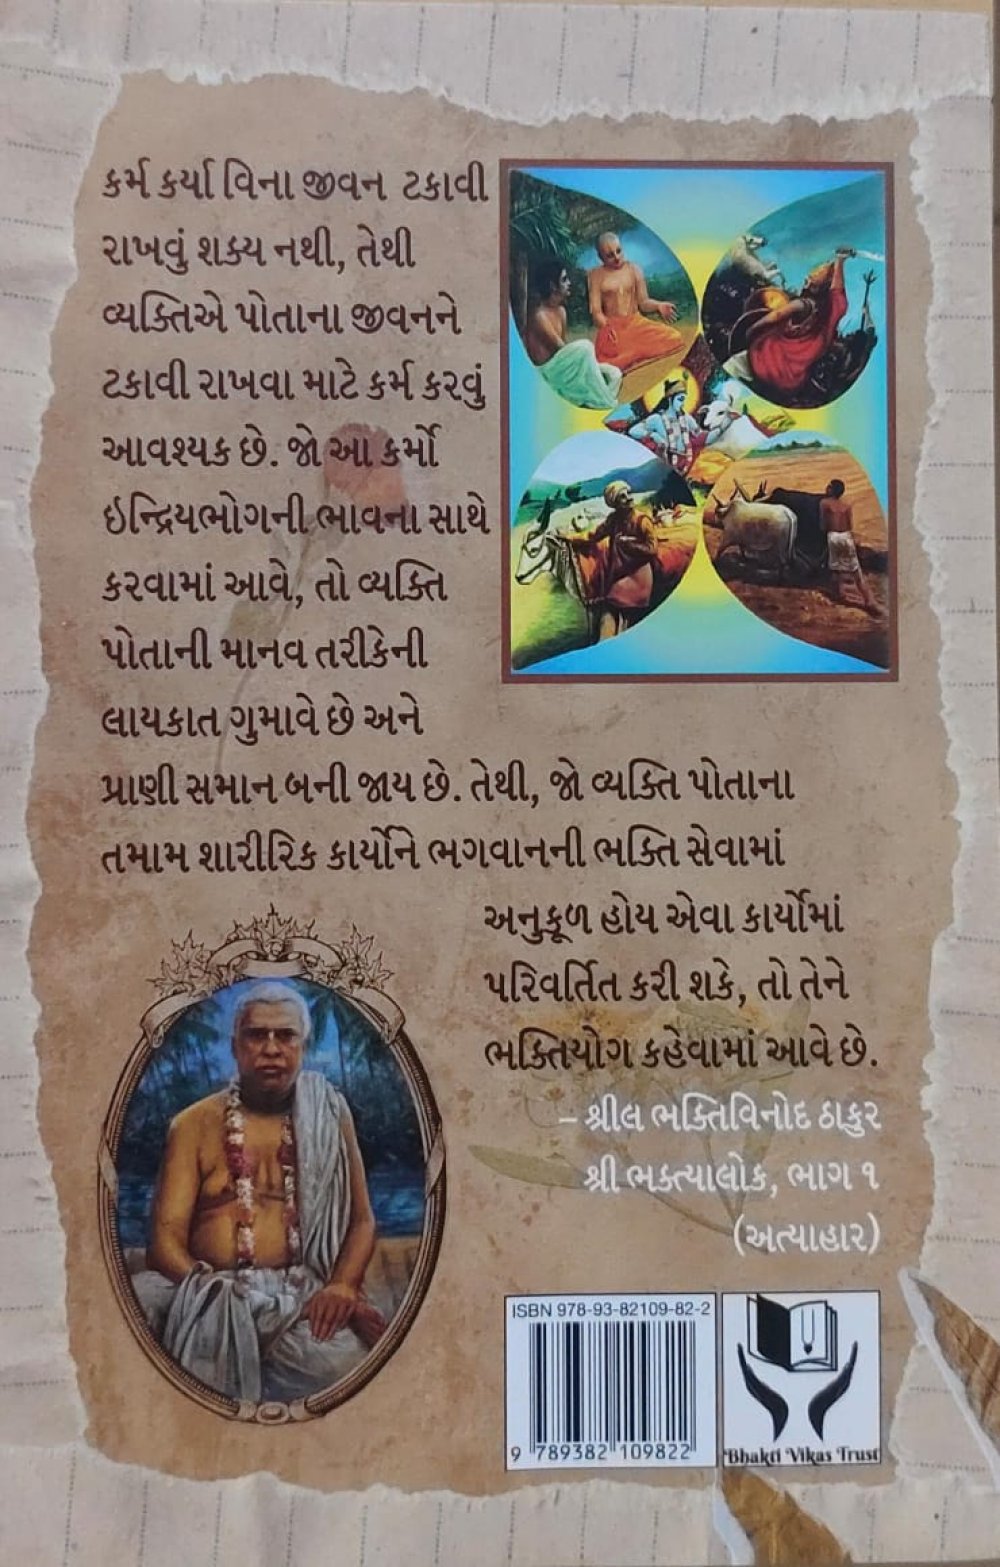 કર્મ કર્યા વિના જીવન ટકાવી
રાખવું શક્ય નથી, તેથી
વ્યક્તિએ પોતાના જીવનને
ટકાવી રાખવા માટે કર્મ કરવું
આવશ્યક છે. જો આ કર્મો
ઇન્દ્રિયભોગની ભાવના સાથે
કરવામાં આવે, તો વ્યક્તિ
પોતાની માનવ તરીકેની
લાયકાત ગુમાવે છે અને
પ્રાણી સમાન બની જાય છે. તેથી, જો વ્યક્તિ પોતાના
તમામ શારીરિક કાર્યોને ભગવાનની ભક્તિ સેવામાં
અનુકૂળ હોય એવા કાર્યોમાં
પરિવર્તિત કરી શકે, તો તેને
ભક્તિયોગ કહેવામાં આવે છે.
– શ્રીલ ભક્તિવિનોદ ઠાકુર
શ્રી ભક્ત્યાલોક, ભાગ ૧
(અત્યાહાર)
ISBN 978-93-82109-82-2
9 789382 109822
Bhakti Vikas Trust